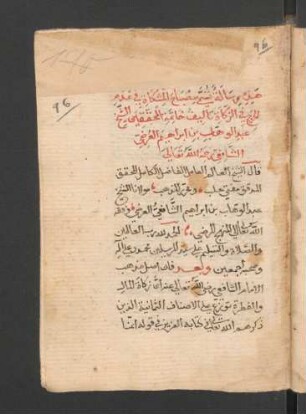 96
96
هذه رسالة تسمى مصباح المشكاة في عدم
الحرج في الزكاة تاليف خاتمة المحققين الشيخ
عبد الوهاب بن ابراهيم العرضي
الشافعي رحمه الله تعالى
قال الشيخ العالم العامل الفاضل الكامل المحقق
المدقق مولانا الشيخ
عبد الوهاب بن ابراهيم الشافعي العرضي
الله تعالى الحمد لله رب العالمين
والصلاة والسلام على سيد المرسلين محمد وعلى آله
وصحبه اجمعين وبعد فان اصل مذهب
الامام الشافعي رضي الله تعالى عنه ان زكاة المال
والفطرة توزع على الاصناف الثمانية الذين
ذكرهم الله تعالى في كتابه العزيز في قوله انما